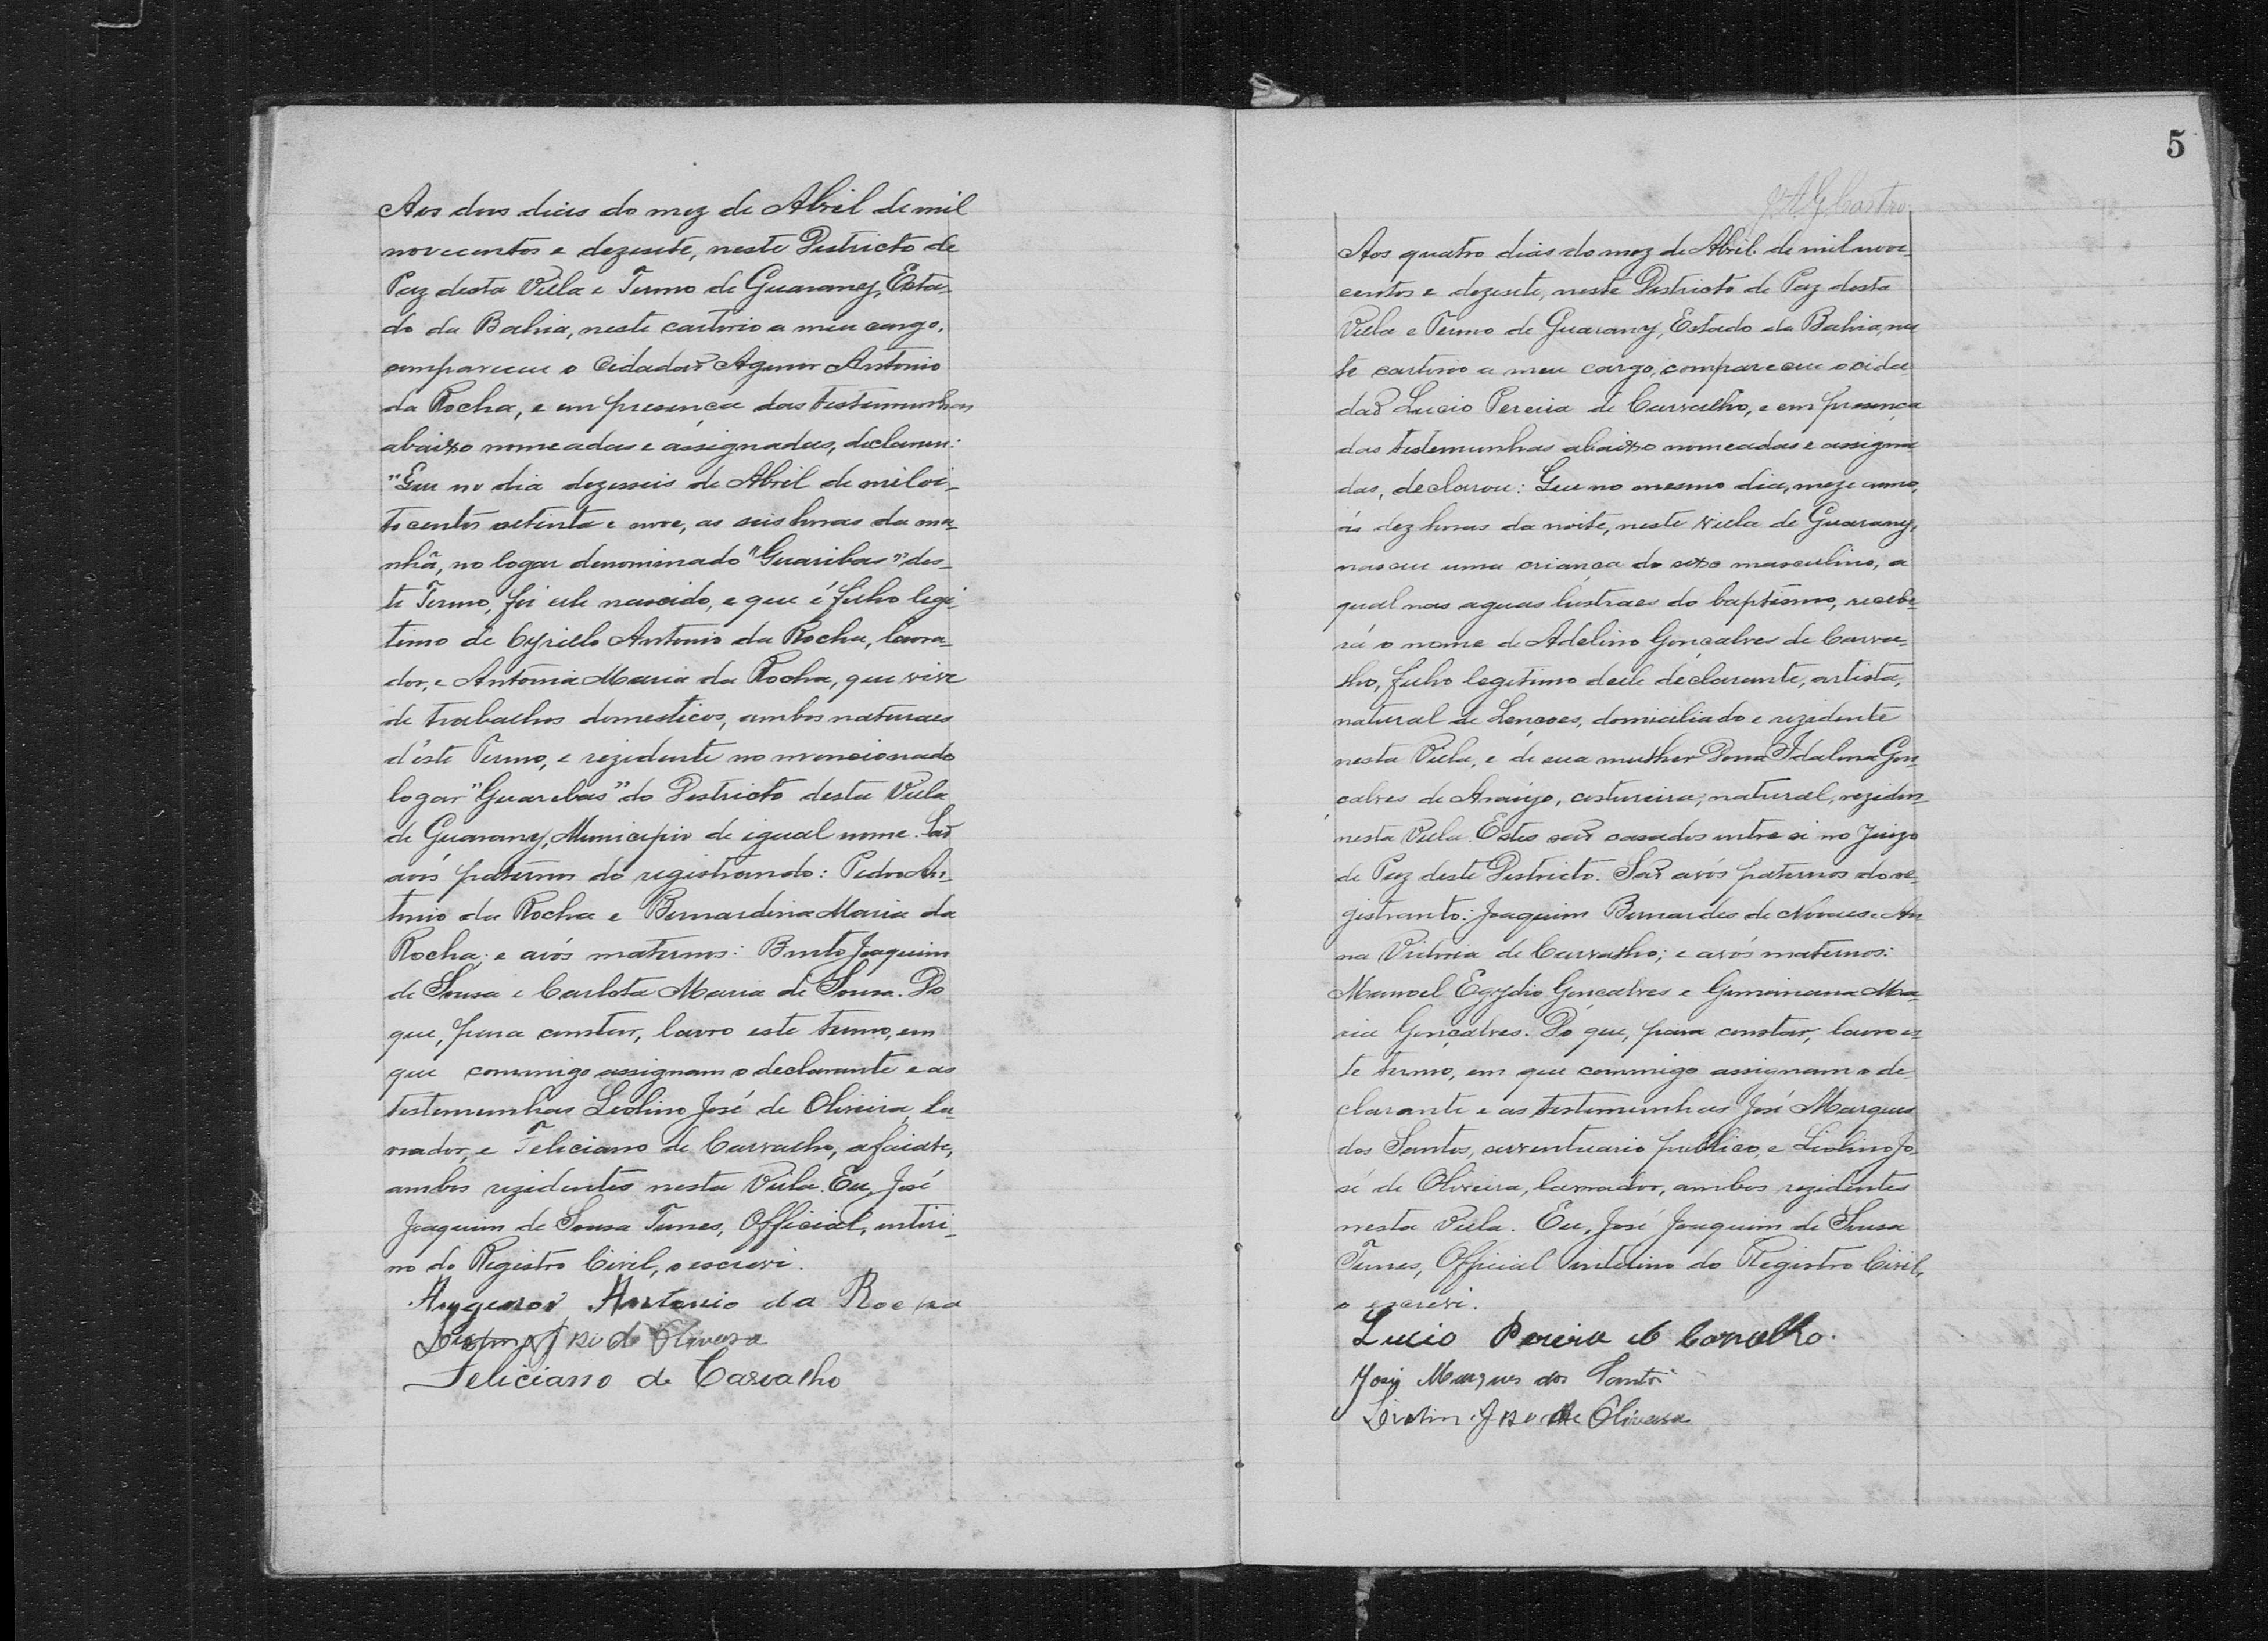 Aos dous dias do mez de Abril de mil
novecentos e dezesete, neste Districto de
Paz desta Villa e Termo de Guarany, Esta-
do da Bahia, neste cartorio a meu cargo,
compareceu o Cidadaõ Agenor Antonio
da Rocha, e em presença das testemunhas
abaixo nomeadas e assignadas, declarou:
"Que no dia dezesseis de Abril de mil oi-
tocentos oitenta e nove, as seis horas da ma-
nhã, no logar denominado "Guaribas" des-
te Termo, foi elle nascido, e que é filho legi-
timo de Cyrillo Antonio da Rocha, lavra-
dor, e Antonia Maria da Rocha, que vive
de trabalhos domesticos, ambos naturaes
d'este Termo, e rezidente no mencionado
logar "Guaribas" do Districto desta Villa
de Guarany, Municipio de igual nome. Saõ
avós paternos do registrando: Pedro An-
tonio da Rocha e Bernardina Maria da
Rocha; e avós maternos: Bento Joaquim
de Sousa e Carlota Maria de Sousa. Do
que, para constar, lavro este termo, em
que commigo assignam o declarante e as
testemunhas Liolino José de Oliveira, la-
vrador, e Feliciano de Carvalho, alfaiate,
ambos rezidentes nesta Villa. Eu, José
Joaquim de Sousa Tunes, Official, interi-
no do Registro Civil, o escrevi.
Aygenor Antonio da Rocha
José de Oliveira
Feliciano de Carvalho
5
J. A. G. Castro.
Aos quatro dias do mez de Abril de mil nove-
centos e dezesete, neste Districto de Paz desta
Villa e Termo de Guarany, Estado da Bahia, nes
te cartorio a meu cargo, compareceu o cida
daõ Lucio Pereira de Carvalho, e em presença
das testemunhas abaixo nomeadas e assigna
das, declarou: Que no mesmo dia, mez e anno,
ás dez horas da noite, neste villa de Guarany,
nasceu uma criança do sexo masculino, a
qual nas aguas lustraes do baptismo, recebe-
rá o nome de Adelino Gonçalves de Carva-
lho, filho legitimo delle declarante, artista,
natural de Lençoes, domiciliado e rezidente
nesta Villa, e de sua mulher Dona Idalina Gon-
calves de Araujo, costureira, natural, reziden-
nesta Villa. Estes saõ casados entre si no Juizo
de Paz deste Districto. Saõ avós paternos do re-
gistranto: Joaquim Bernardes de Novaes e An
na Victoria de Carvalho; e avós maternos:
Manoel Egydio Gonçalves e Geminiana Ma-
ria Gonçalves. Do que, para constar, lavro es-
te termo, em que commigo assignam o de-
clarante e as testemunhas José Marques
dos Santos, serventuario publico, e Liolino Jo
sé de Oliveira, lavrador, ambos rezidentes
nesta Villa. Eu, José Joaquim de Sousa
Tunes, Official interino do Registro Civil,
o escrevi.
Lucio Pereira de Carvalho.
José Marques dos Santos
Liolino José de Oliveira